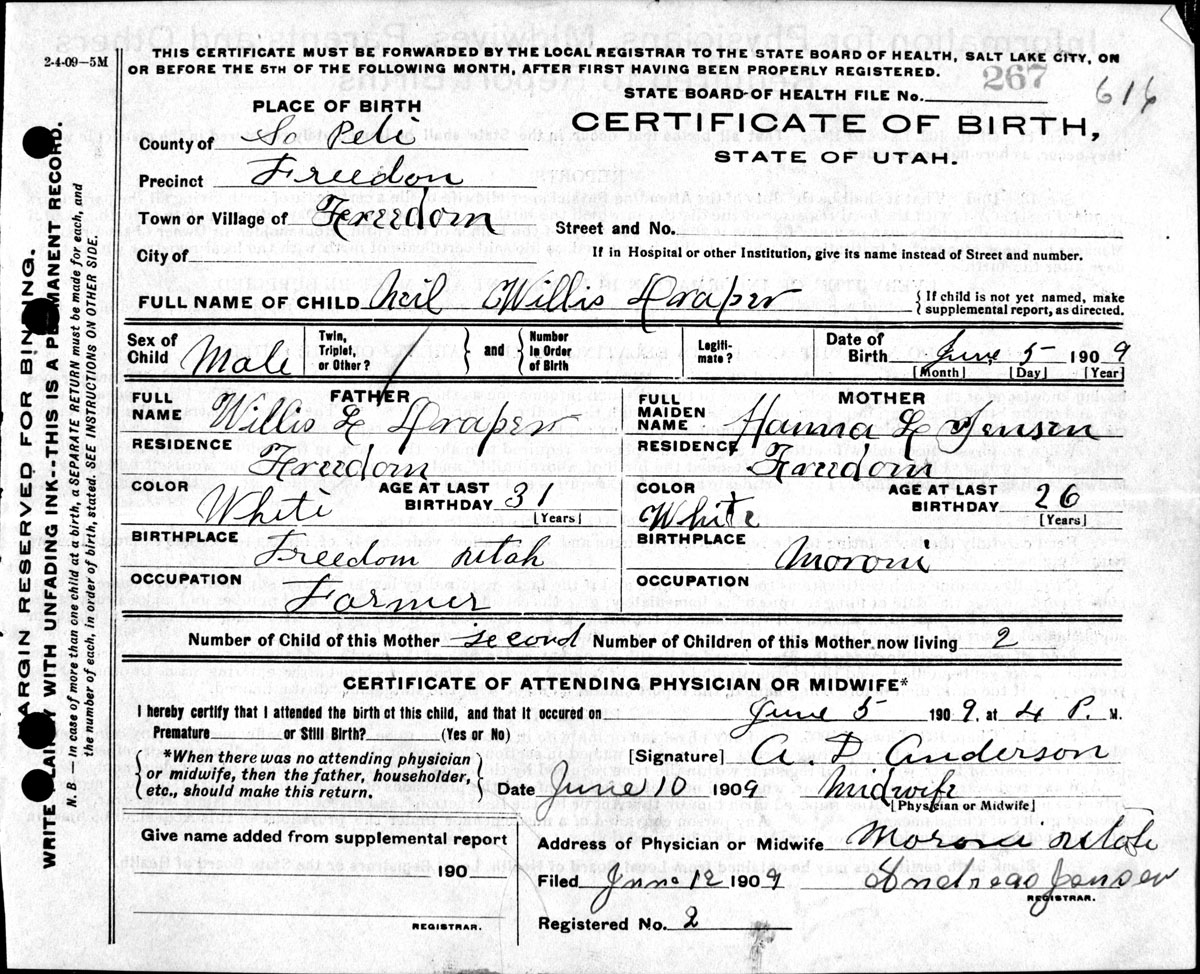 2-4-09-5M
THIS CERTIFICATE MUST BE FORWARDED BY THE LOCAL REGISTRAR TO THE STATE BOARD OF HEALTH, SALT LAKE CITY, ON
OR BEFORE THE 5TH OF THE FOLLOWING MONTH, AFTER FIRST HAVING BEEN PROPERLY REGISTERED.
STATE BOARD OF HEALTH FILE No. 267
616
PLACE OF BIRTH
CERTIFICATE OF BIRTH,
STATE OF UTAH.
County of San Peti
Precinct Freedon
Town or Village of Freedom
Street and No.
City of
If in Hospital or other Institution, give its name instead of Street and number.
FULL NAME OF CHILD Neil Willis Draper
{ If child is not yet named, make
supplemental report, as directed.
Sex of Child Male
Twin, Triplet, or Other?
and Number in Order of Birth
Legiti-mate?
Date of Birth June 5 1909
[Month] [Day] [Year]
FATHER
FULL NAME Willis L Draper
RESIDENCE Freedom
COLOR White
AGE AT LAST BIRTHDAY 31
[Years]
BIRTHPLACE Freedom utah
OCCUPATION Farmer
MOTHER
FULL MAIDEN NAME Hanna L Jensen
RESIDENCE Freedom
COLOR White
AGE AT LAST BIRTHDAY 26
[Years]
BIRTHPLACE Moroni
OCCUPATION
Number of Child of this Mother second Number of Children of this Mother now living 2
CERTIFICATE OF ATTENDING PHYSICIAN OR MIDWIFE*
I hereby certify that I attended the birth of this child, and that it occured on June 5 1909. at 4 P. M.
Premature or Still Birth? (Yes or No)
*When there was no attending physician
or midwife, then the father, householder,
etc., should make this return.
[Signature] A D Anderson
Date June 10 1909 Midwife
[Physician or Midwife]
Give name added from supplemental report
190
REGISTRAR.
Address of Physician or Midwife Moroni utah
Filed June 12 1909 Andreas Jensen
REGISTRAR.
Registered No. 2
MARGIN RESERVED FOR BINDING.
WRITE PLAINLY WITH UNFADING INK--THIS IS A PERMANENT RECORD.
N. B.—In case of more than one child at a birth, a SEPARATE RETURN must be made for each, and
the number of each, in order of birth, stated. SEE INSTRUCTIONS ON OTHER SIDE.